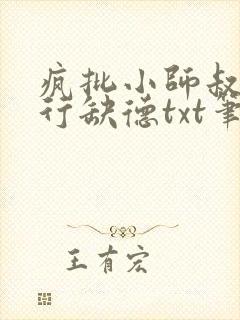 疯批小师叔
行缺德txt笔
王有宏